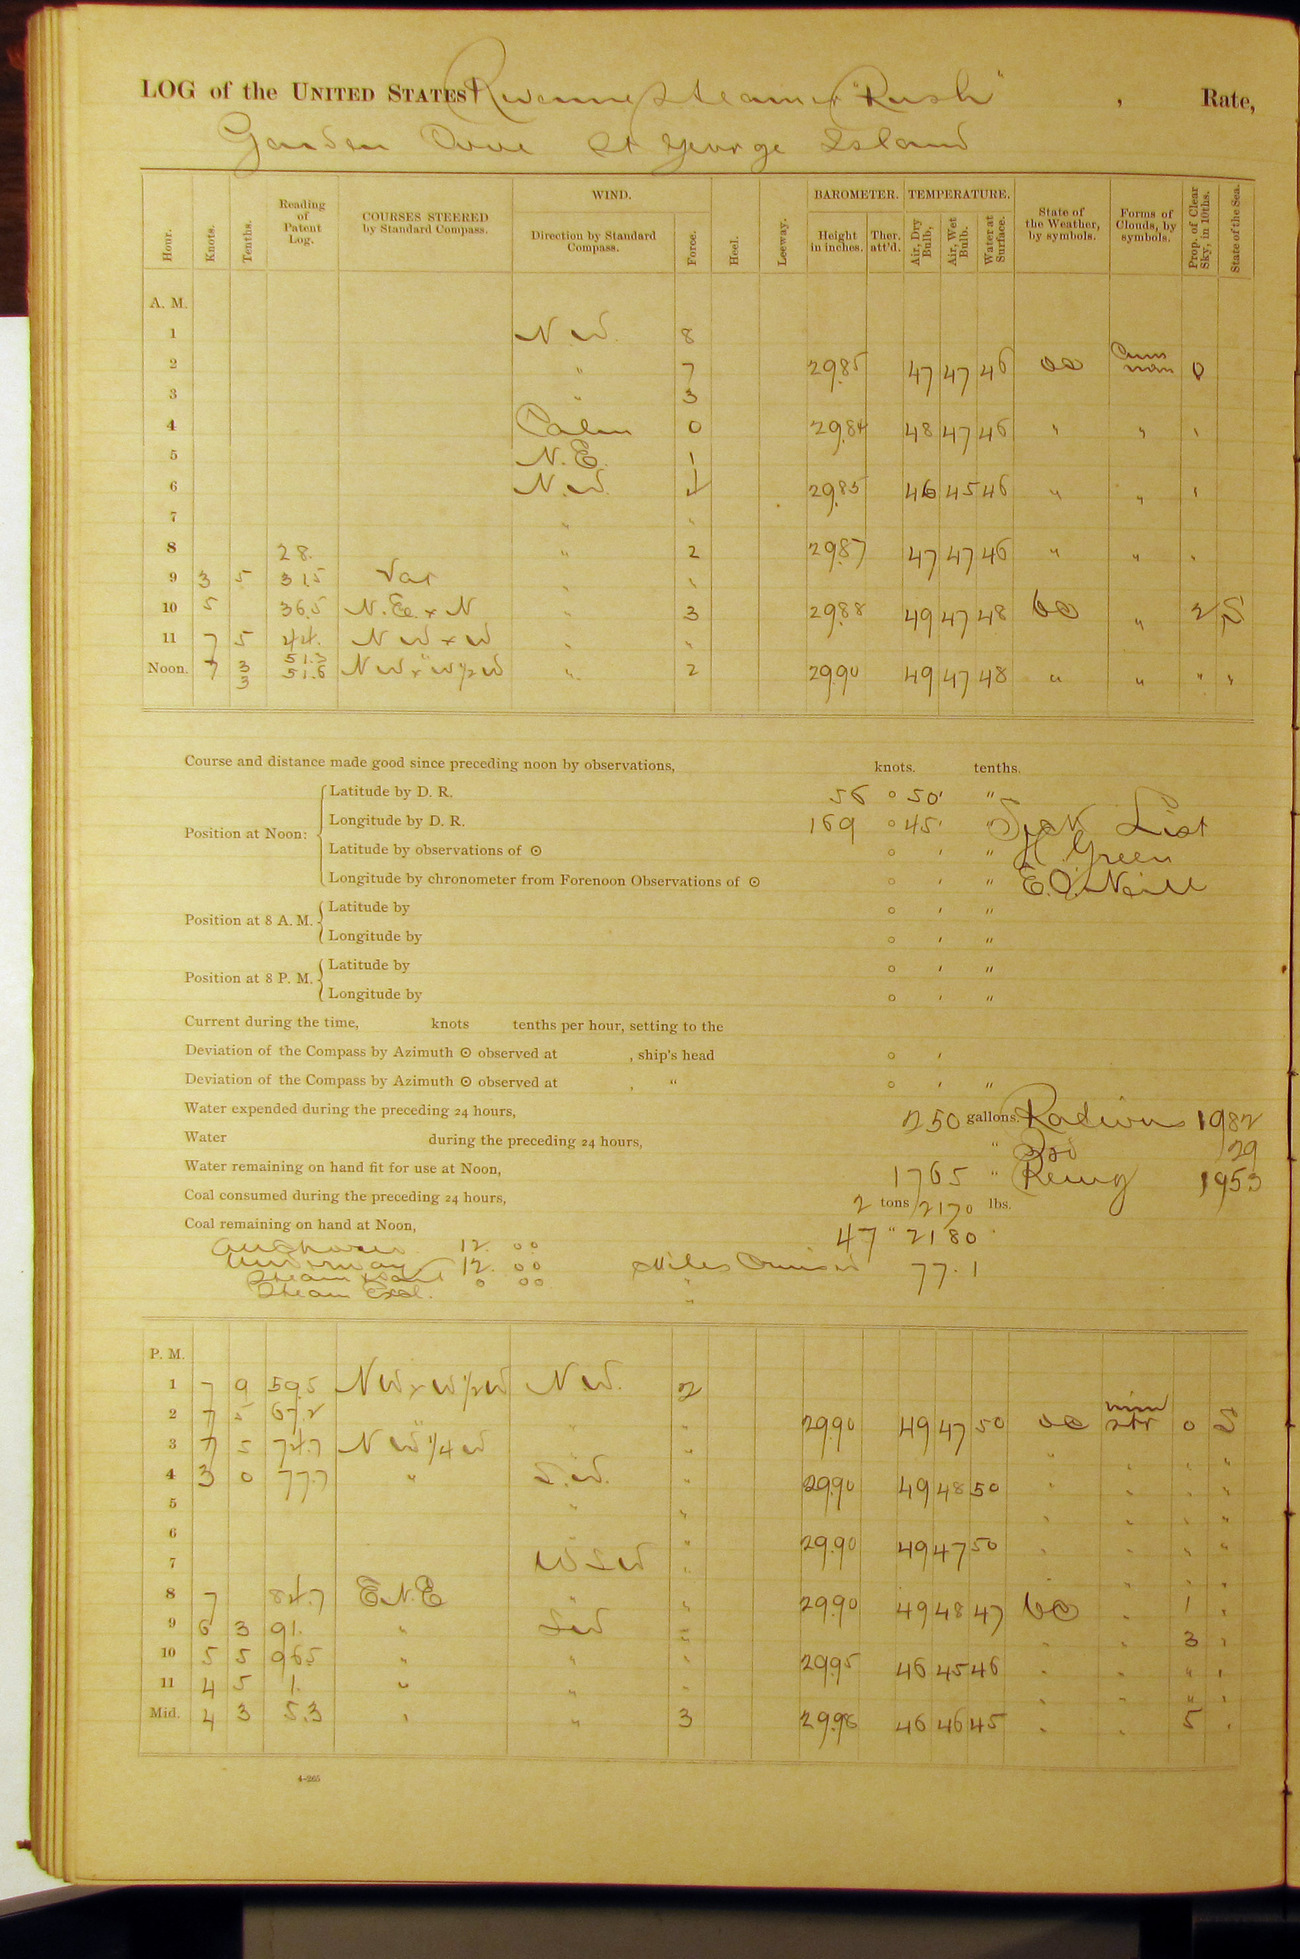 LOG of the UNITED STATES Revenue Steamer "Rush" , Rate,
Garden Cove St George Island
Hour. Knots. Tenths. Reading of Patent Log. COURSES STEERED by Standard Compass. WIND. Direction by Standard Compass. Force. Heel. Leeway. BAROMETER. Height in inches. Ther. att'd. TEMPERATURE. Air, Dry Bulb, Air, Wet Bulb. Water at Surface. State of the Weather, by symbols. Forms of Clouds, by symbols. Prop. of Clear Sky, in 10ths. State of the Sea.
A. M.
1 N.W. 8
2 " 7 29.85 47 47 46 Cum nim 0
3 " 3
4 Calm 0 29.84 48 47 46 " " "
5 N.E. 1
6 N.W. 29.85 46 45 46 " " "
7 " "
8 28. " 2 29.87 47 47 46 " " "
9 3 5 31.5 Var " "
10 5 36.5 N.E. x N " 3 29.88 49 47 48 bc " 2 S
11 7 5 44. NW x W " "
Noon. 7 3 3 51.3 51.6 NW x W 1/2 W " 2 29.90 49 47 48 " " " "
Course and distance made good since preceding noon by observations, knots. tenths.
Position at Noon: Latitude by D. R. 56 ° 50' "
Longitude by D. R. 169 ° 45' " Sick List
Latitude by observations of ☉ ° ' " H. Green
Longitude by chronometer from Forenoon Observations of ☉ ° ' " E. O'Neill
Position at 8 A. M. Latitude by ° ' "
Longitude by ° ' "
Position at 8 P. M. Latitude by ° ' "
Longitude by ° ' "
Current during the time, knots tenths per hour, setting to the
Deviation of the Compass by Azimuth ☉ observed at , ship's head ° '
Deviation of the Compass by Azimuth ☉ observed at , " ° ' "
Water expended during the preceding 24 hours, 250 gallons. Rations 1982
Water during the preceding 24 hours, " 29
Water remaining on hand fit for use at Noon, 1765 " Remg 1953
Coal consumed during the preceding 24 hours, 2 tons 2170 lbs.
Coal remaining on hand at Noon, 47 " 2180 "
Anchored 12. 00
Underway 12. 00 Miles Cruised 77.1
Steam & Sail 0 00 "
Steam Excl. "
P. M.
1 7 9 59.5 NW x W 1/2 W N.W. 2
2 7 5 67.2 " " " 29.90 49 47 50 nim str 0 S
3 7 5 74.7 NW 1/4 W " " " " "
4 3 0 77.7 " S.W. " 29.90 49 48 50 " " " "
5 " " " " " "
6 " " 29.90 49 47 50 " " " "
7 WSW " " " " "
8 7 84.7 E.N.E " " 29.90 49 48 47 bc " 1 "
9 6 3 91. " SW " " " 3 "
10 5 5 96.5 " " " 29.95 46 45 46 " " " "
11 4 5 1. " " " " " " "
Mid. 4 3 5.3 " " 3 29.98 46 46 45 " " 5 "
4-265